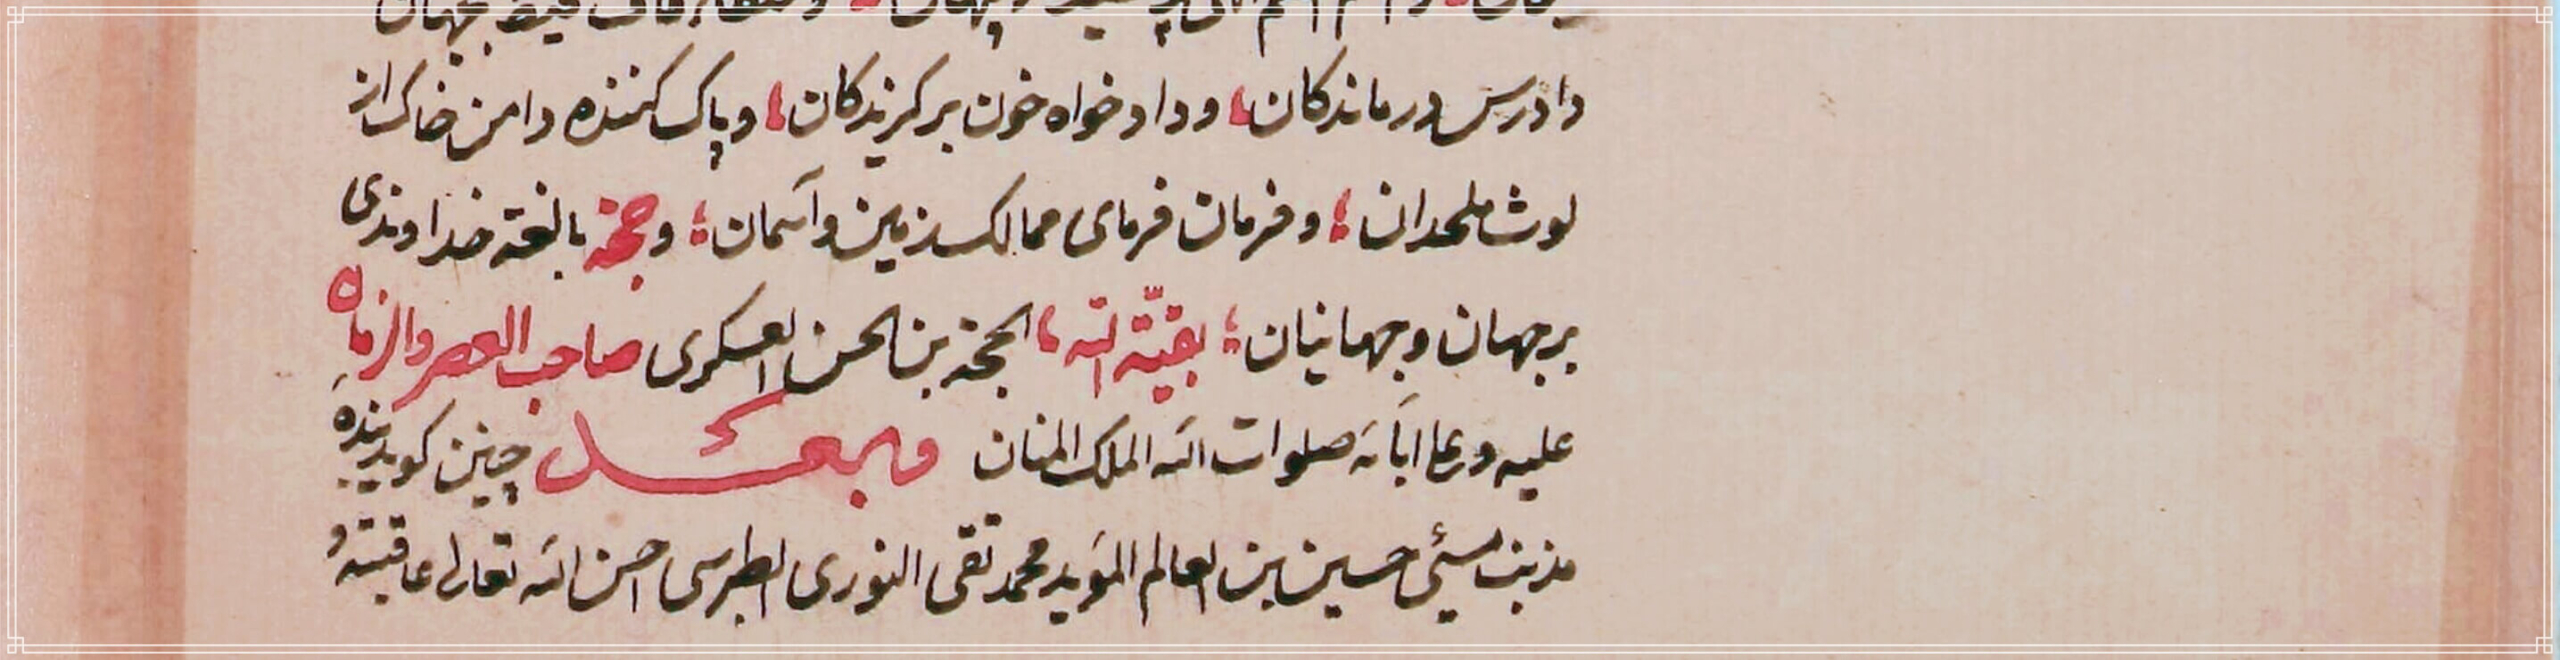 دادرس درماندکان؛ و دادخواه خون برکزیدکان؛ و پاک کننده دامن خاک از
لوث ملحدان؛ و فرمان فرمای ممالک زمین و آسمان؛ و حجّة بالغة خداوندی
بر جهان و جهانیان؛ بقیّة الله؛ الحجة بن الحسن العسکری صاحب العصر والزمان
علیه وعلی آبائه صلوات الله الملک المنان وبعد چنین کوید بنده
مذنب مسیئی حسین بن العالم المؤید محمد تقی النوری الطبرسی احسن الله تعالی عاقبته و